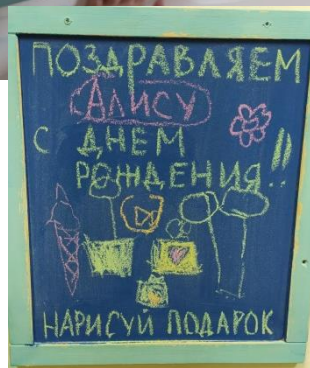 ПОЗДРАВЛЯЕМ
АЛИСУ
С ДНЕМ
РОЖДЕНИЯ!!
НАРИСУЙ ПОДАРОК